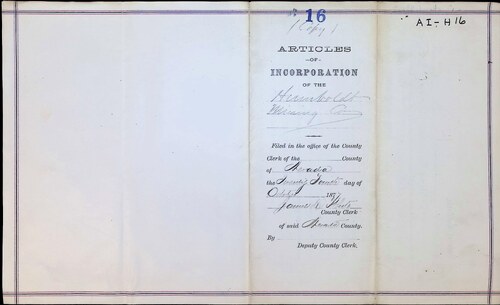 16
(Copy)
AI-H16
ARTICLES
-OF-
INCORPORATION
OF THE
Humboldt
Mining Co
Filed in the office of the County
Clerk of the County
of Nevada
the Twenty Fourth day of
1877
James
County Clerk
of said Nevada County.
By
Deputy County Clerk.